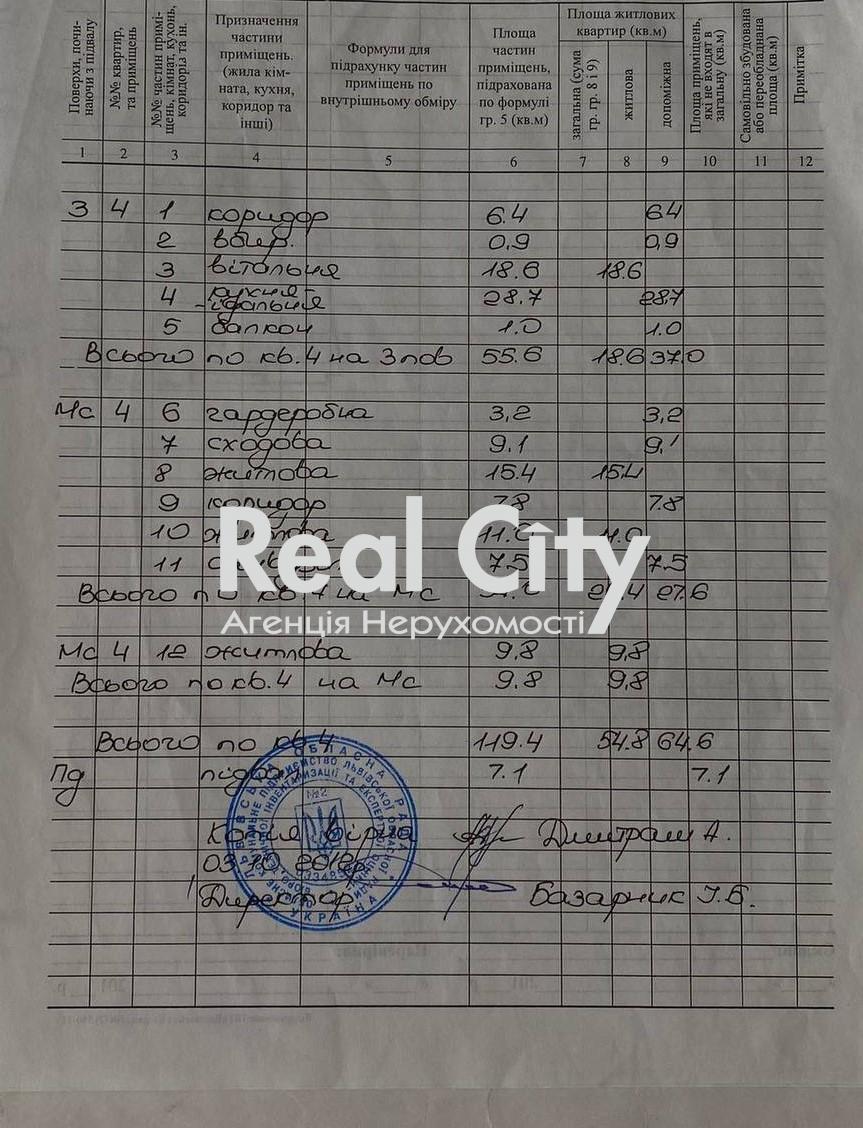 Поверхи, почи-
наючи з підвалу
№№ квартир,
та приміщень
№№ частин примі-
щень, кімнат, кухонь,
коридорів та ін.
Призначення
частини
приміщень.
(жила кім-
ната, кухня,
коридор та
інші)
Формули для
підрахунку частин
приміщень по
внутрішньому обміру
Площа
частин
приміщень,
підрахована
по формулі
гр. 5 (кв.м)
Площа житлових
квартир (кв.м)
загальна (сума
гр. гр. 8 і 9)
житлова
допоміжна
Площа приміщень,
які не входят в
загальну (кв.м)
Самовільно збудована
або переобладнана
площа (кв.м)
Примітка
1 2 3 4 5 6 7 8 9 10 11 12
3 4 1 коридор 6.4 6.4
2 0,9 0,9
3 вітальня 18.6 18.6
4 кухня-
-їдальня 28.7 28.7
5 балкон 1.0 1.0
Всього по кв.4 на 3 пов 55.6 18.6 37.0
Мс 4 6 гардеробна 3,2 3,2
7 сходова 9.1 9.1
8 житлова 15.4 15.4
9 коридор 7.8 7.8
10 житлова 11.0 11.0
11 7.5 7.5
Всього по кв.4 на Мс 27.6
Мс 4 12 житлова 9.8 9,8
Всього по кв.4 на Мс 9.8 9,8
Всього по кв.4 119.4 54.8 64.6
Пд підвал 7.1 7.1
Копія вірна Дмитраш А.
03.10.2012р.
Директор Базарник І.Б.
Real City
Агенція Нерухомості
ЛЬВІВСЬКА ОБЛАСНА РАДА
УКРАЇНА
№2